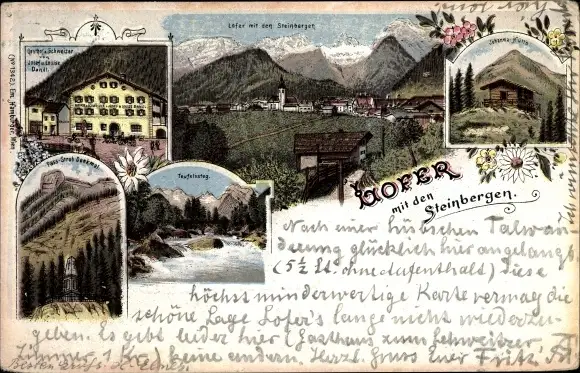 Lofer mit den Steinbergen
Gasthof z. Schweizer
von
Dankl.
Johanns-Hütte
Pass-Strub Denkmal
Teufelssteg.
LOFER
mit den
Steinbergen.
Nach einer hübschen Talwan-
derung glücklich hier angelangt
(5½ St. ohne Aufenthalt) Diese
höchst minderwertige Karte vermag die
schöne Lage Lofer's lange nicht wiederzu-
geben. Es gibt leider hier (Gasthaus zum Schweitzer
Zimmer 1 Kr.) keine andern. Herzl. Gruss Euer Fritz
besten Gruss